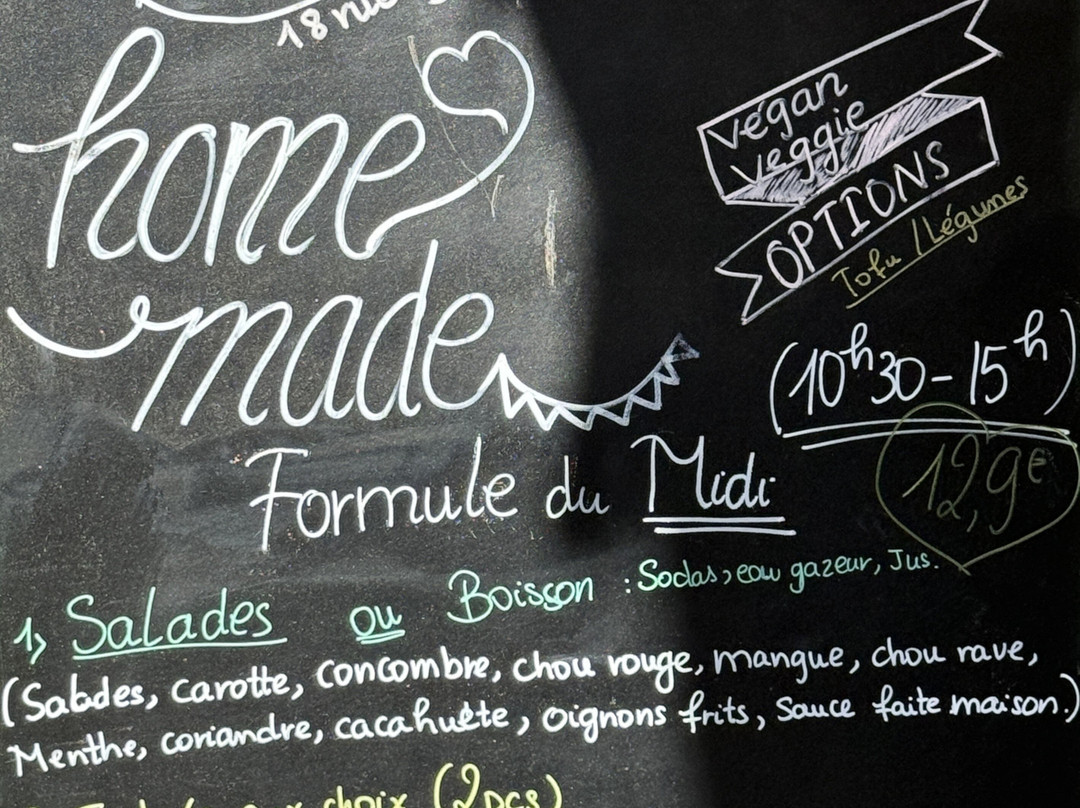 18 rue
home
made
végan
veggie
OPTIONS
Tofu / Légumes
(10h30 - 15h)
12,9€
Formule du Midi
1, Salades ou Boisson : Sodas, eau gazeur, Jus.
(Salades, carotte, concombre, chou rouge, mangue, chou rave,
Menthe, coriandre, cacahuète, oignons frits, sauce faite maison.)
choix (2 pcs)